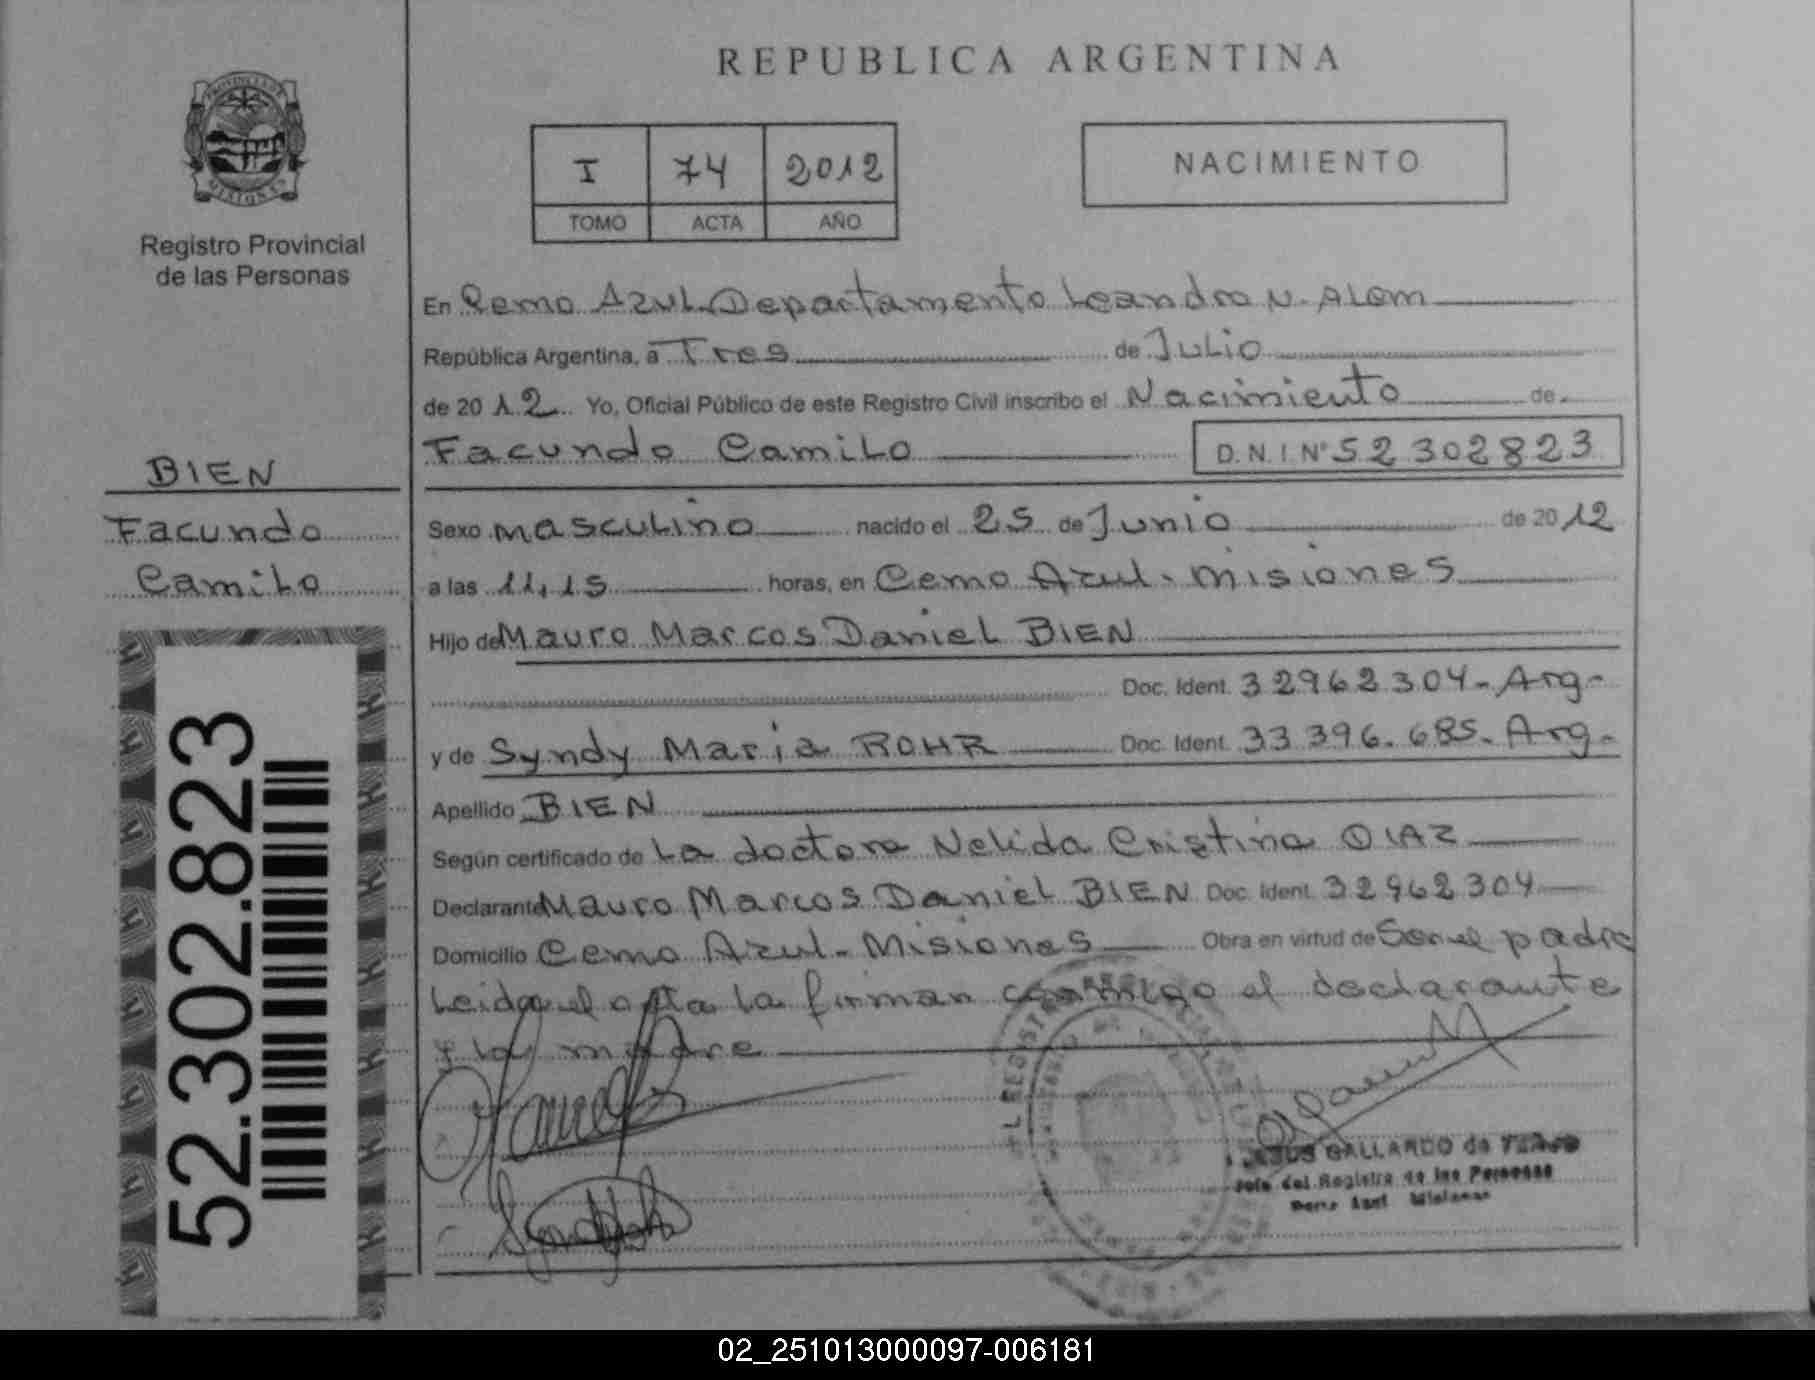 REPUBLICA ARGENTINA
PROVINCIA DE
MISIONES
Registro Provincial
de las Personas
I 74 2012
TOMO ACTA AÑO
NACIMIENTO
En Cerro Azul Departamento Leandro N. Alem
República Argentina, a Tres de Julio
de 20 12 Yo, Oficial Público de este Registro Civil inscribo el Nacimiento de
Facundo Camilo D.N.I. Nº 52302823
BIEN
Facundo
Camilo
Sexo masculino nacido el 25 de Junio de 20 12
a las 11,15 horas, en Cerro Azul - Misiones
Hijo de Mauro Marcos Daniel BIEN
Doc. Ident. 32962304 - Arg-
y de Syndy Maria ROHR Doc. Ident. 33 396.685 - Arg-
Apellido BIEN
Según certificado de La doctora Nelida Cristina DIAZ
Declarante Mauro Marcos Daniel BIEN Doc. Ident. 32962304
Domicilio Cerro Azul - Misiones Obra en virtud de Ser el padre
Leida el acta la firman conmigo el declarante
y la madre
52.302.823
GALLARDO de
Jefe del Registro de las Personas
Cerro Azul Misiones
02_251013000097-006181